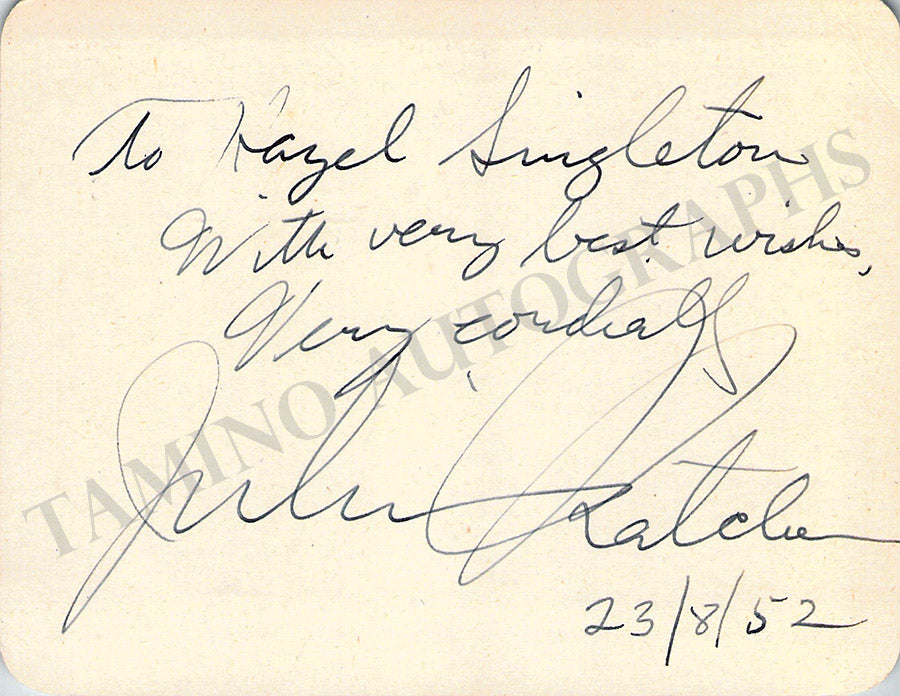 To Hazel Singleton
With very best wishes,
Very cordially
Julius Katchen
23/8/52
TAMINO AUTOGRAPHS